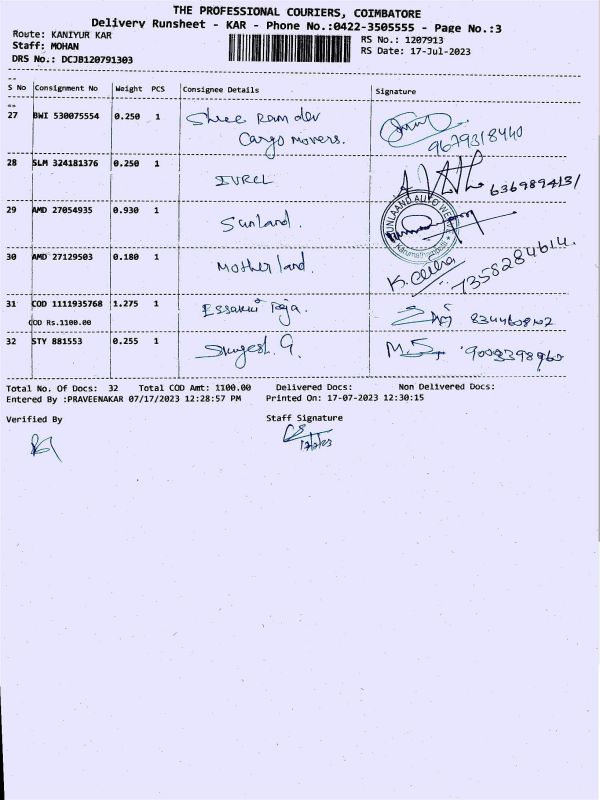 THE PROFESSIONAL COURIERS, COIMBATORE
Delivery Runsheet - KAR - Phone No.:0422-3505555 - Page No.:3
Route: KANIYUR KAR
RS No.: 1207913
Staff: MOHAN
RS Date: 17-Jul-2023
DRS No.: DCJB120791303
S No Consignment No Weight PCS Consignee Details Signature
27 BWI 530075554 0.250 1 Shree Ram dev
Cargo movers. 9679318440
28 SLM 324181376 0.250 1
IVRCL 6369894131
29 AMD 27054935 0.930 1 Sunland.
30 AMD 27129503 0.180 1 Motherland. 7358284614.
31 COD 1111935768 1.275 1 Essakki Raja.
COD Rs.1100.00
32 STY 881553 0.255 1
Total No. Of Docs: 32 Total COD Amt: 1100.00 Delivered Docs: Non Delivered Docs:
Entered By :PRAVEENAKAR 07/17/2023 12:28:57 PM Printed On: 17-07-2023 12:30:15
Verified By Staff Signature